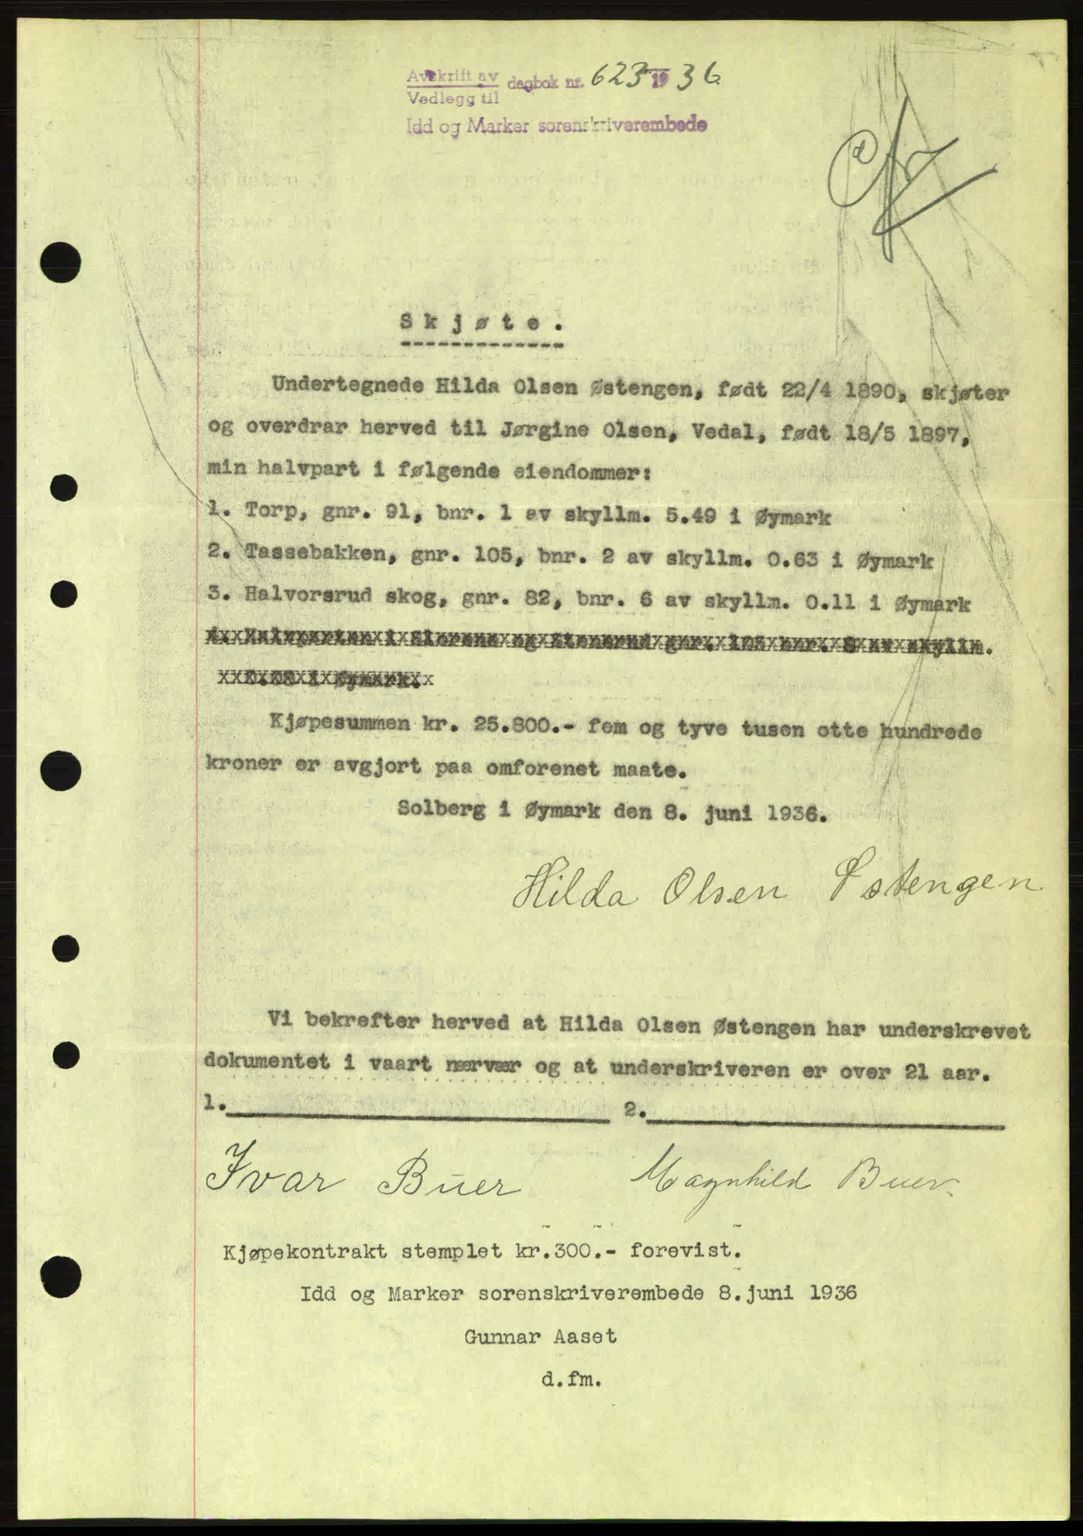 Avskrift av
Vedlegg til
dagbok nr. 623 1936
Idd og Marker sorenskriverembede
Skjøte.
Undertegnede Hilda Olsen Østengen, født 22/4 1890, skjøter
og overdrar herved til Jørgine Olsen, Vedal, født 18/5 1897,
min halvpart i følgende eiendommer:
1. Torp, gnr. 91, bnr. 1 av skyllm. 5.49 i Øymark
2. Tassebakken, gnr. 105, bnr. 2 av skyllm. 0.63 i Øymark
3. Halvorsrud skog, gnr. 82, bnr. 6 av skyllm. 0.11 i Øymark
Kjøpesummen kr. 25.800.- fem og tyve tusen otte hundrede
kroner er avgjort paa omforenet maate.
Solberg i Øymark den 8. juni 1936.
Hilda Olsen Østengen
Vi bekrefter herved at Hilda Olsen Østengen har underskrevet
dokumentet i vaart nærvær og at underskriveren er over 21 aar.
1. 2.
Ivar Buer Magnhild Buer.
Kjøpekontrakt stemplet kr.300.- forevist.
Idd og Marker sorenskriverembede 8.juni 1936
Gunnar Aaset
d.fm.